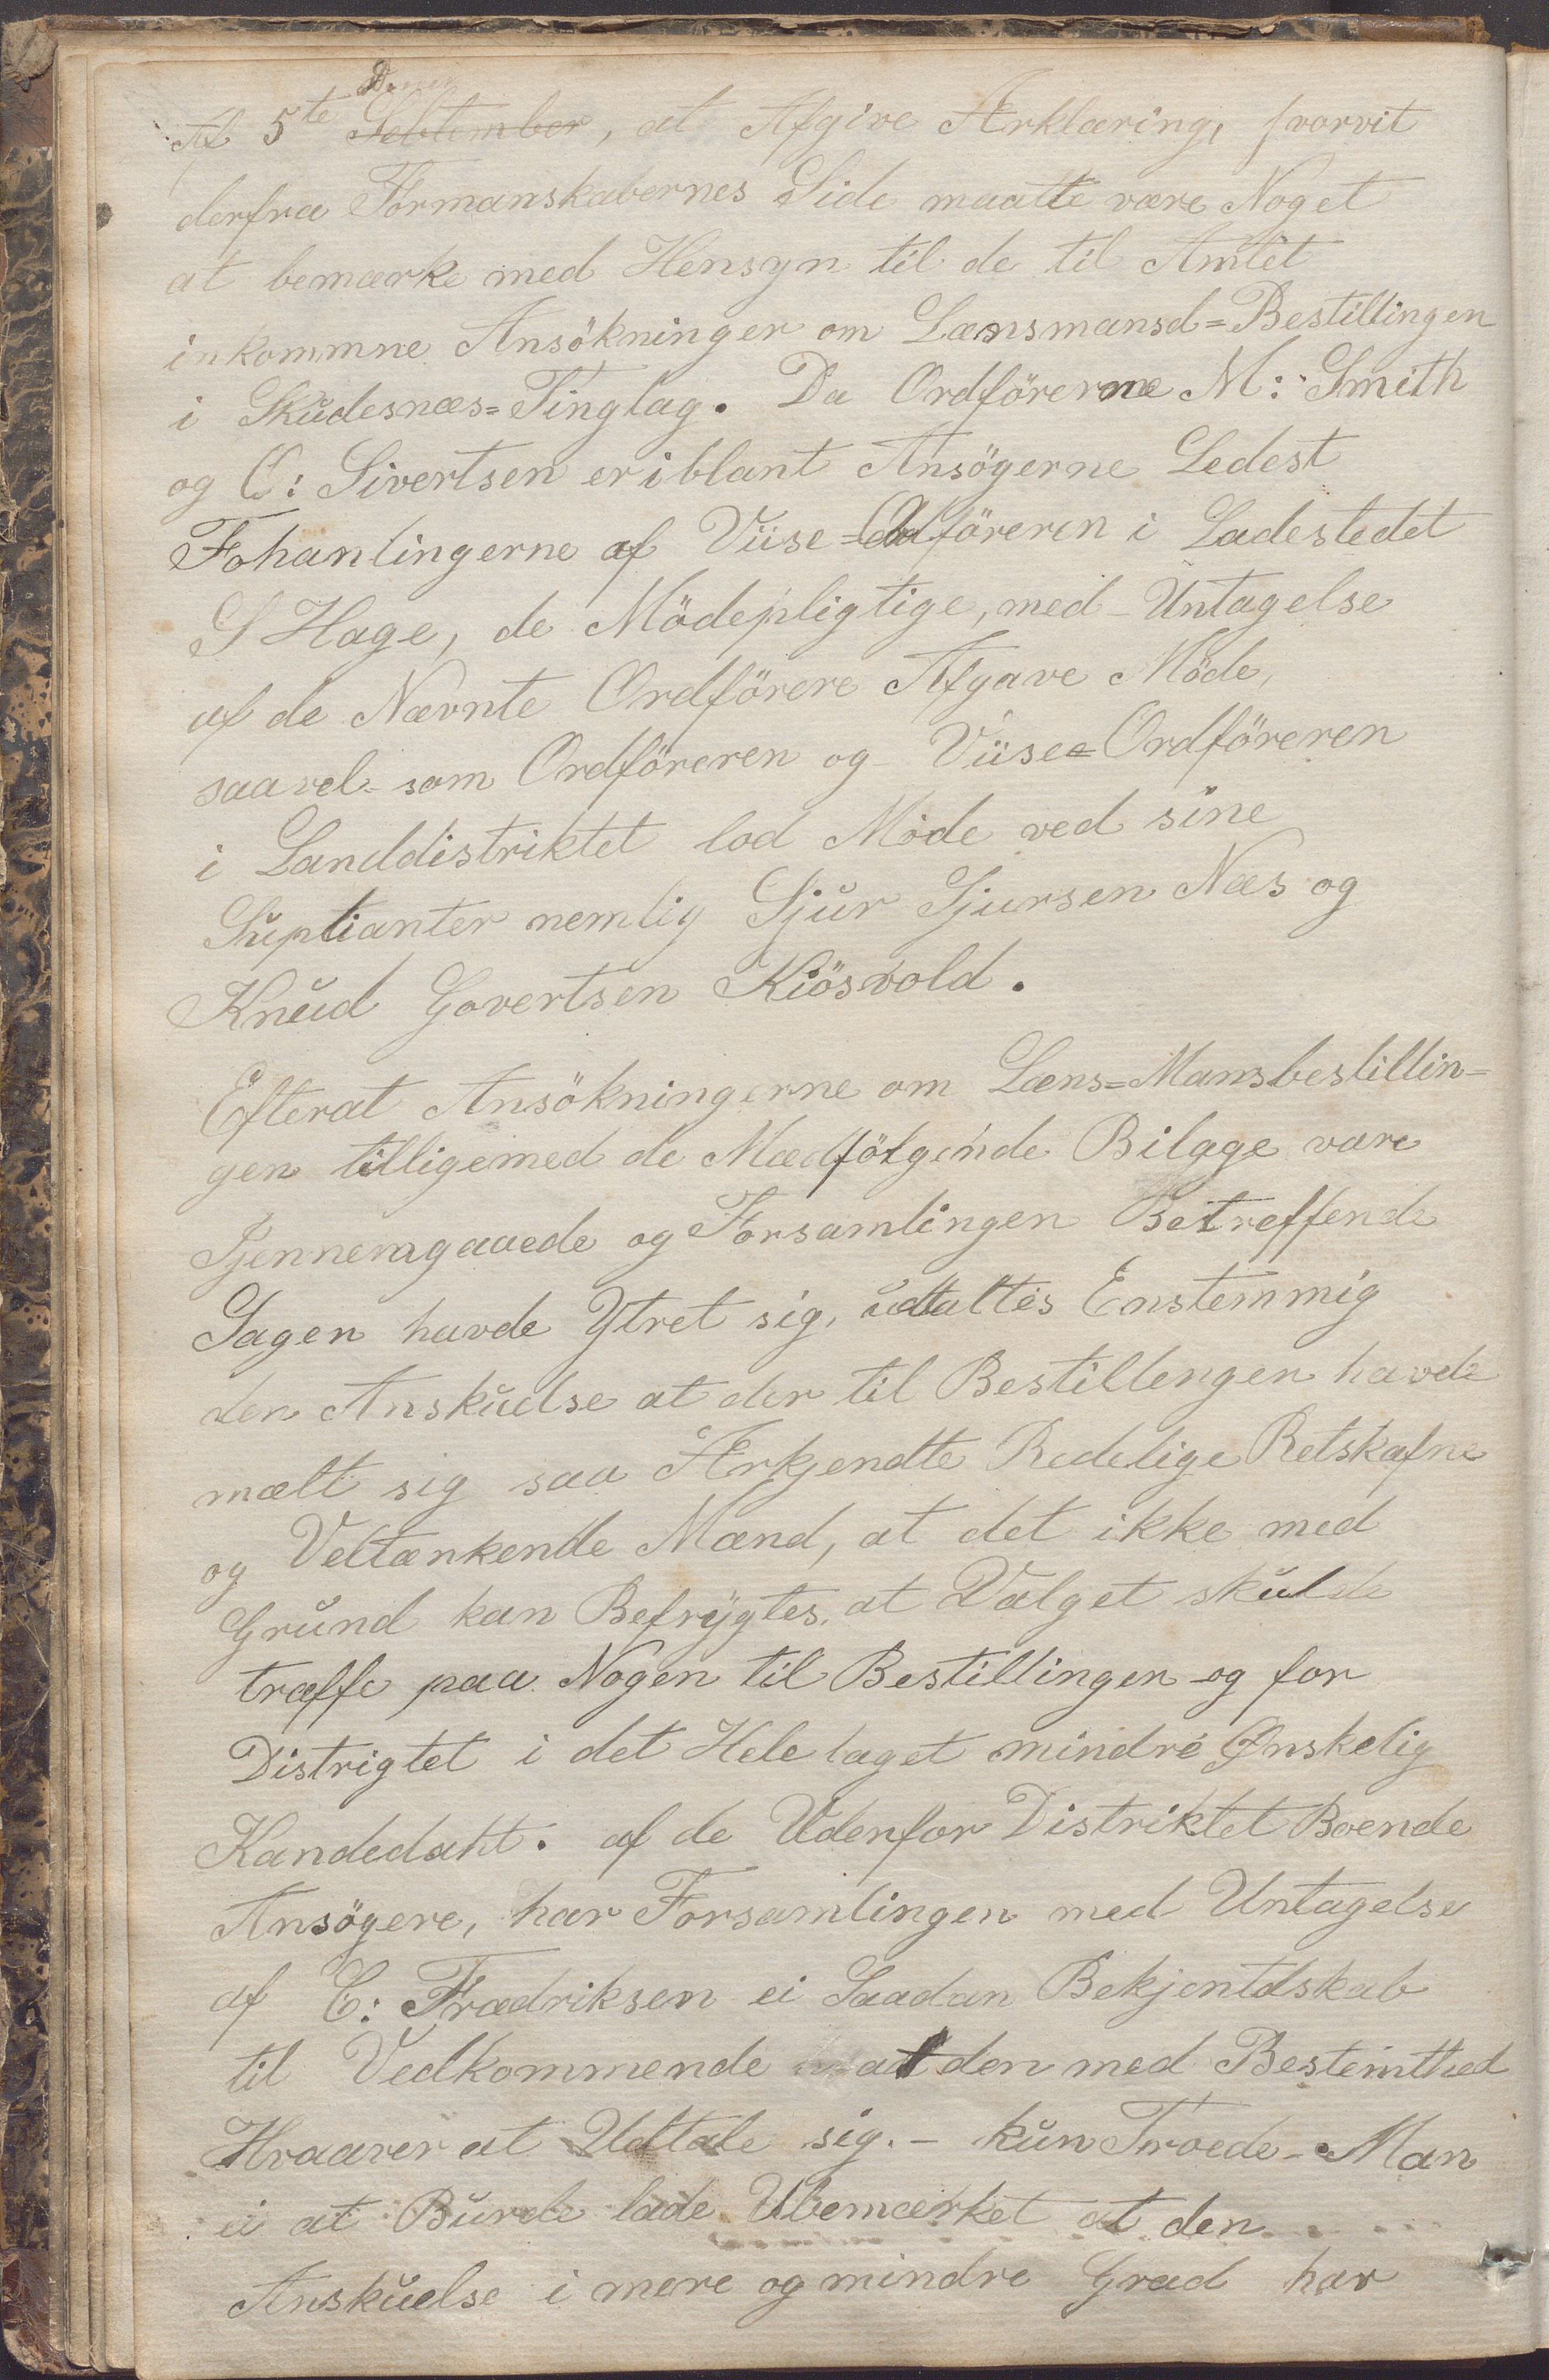 Af 5te Sebtember, at Afgive Ærklæring, hvorvit
derfra Formanskabernes Side maatte være Noget
at bemærke med Hensyn til de til Amtet
inkommne Ansökninger om Lænsmansd=Bestillingen
i Skudesnæs=Tinglag. Da Ordförerne M: Smith
og O: Sivertsen er iblant Ansögerne Ledest
Fohanlingerne af Viise=Ordföreren i Ladestedet
S Hage, de Mödepligtige, med Untagelse
af de Nævnte Ordförere Afgave Möde,
saavel som Ordföreren og Viise=Ordföreren
i Landdistriktet lod Möde ved sine
Suplianter nemlig Sjur Sjursen Næs og
Knud Govertsen Kiösvold.
Efterat Ansökningerne om Læns=Mansbestillin=
gen tilligemed de Medfölgende Bilage vare
Gjennemgaaede og Forsamlingen Betreffende
Sagen havde Ytret sig, udtaltes Enstemmig
den Anskudse at der til Bestillengen havde
mælt sig saa Ærkjendte Redelige Retskafne
og Veltænkende Mænd, at det ikke med
Grund kan Befrygtes, at Valget skulde
træffe paa Nogen til Bestillingen og for
Distrigtet i det Hele taget mindre Ønskelig
Kandedaht. af de Udenfor Distriktet Boende
Ansögere, har Forsamlingen med Untagelse
af C: Frædriksen ei Saadan Bekjentdskab
til Vedkommende at den med Bestemthed
Hvaaver at Udtale sig. - kun Troede - Man
ei at Burde lade Ubemærket at den
Anskuelse i mere og mindre Grad har